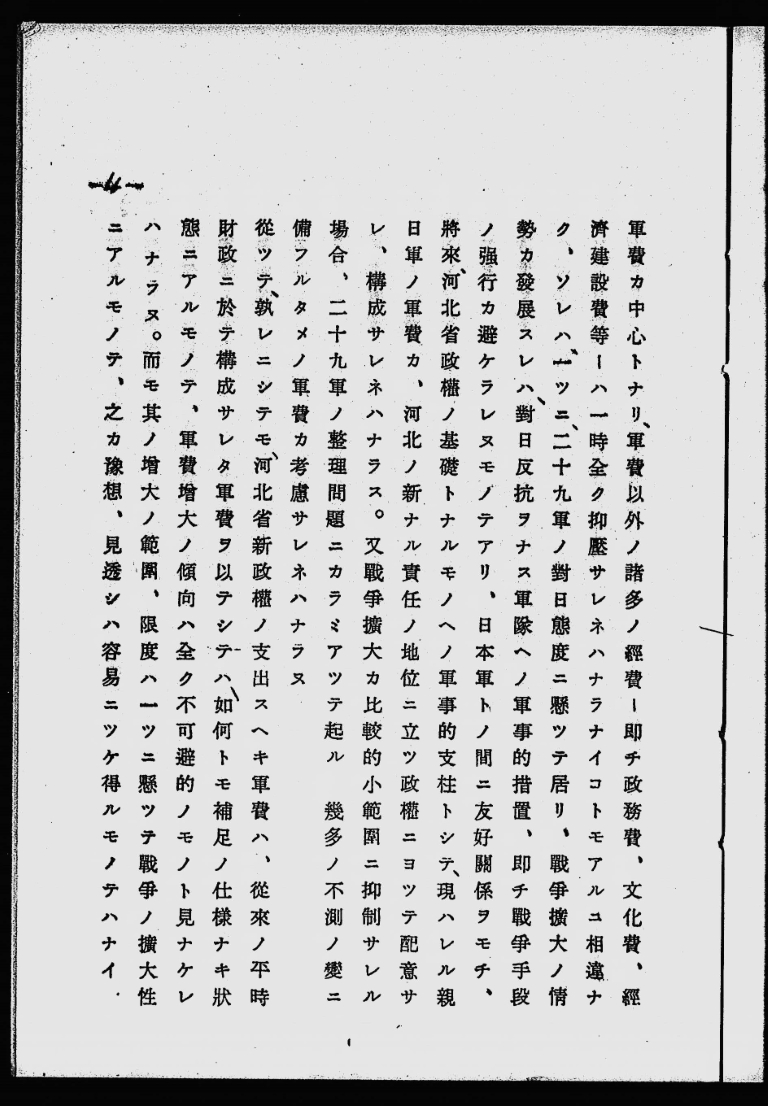 軍費カ中心トナリ、軍費以外ノ諸多ノ經費ー即チ政務費、文化費、經
濟建設費等ーハ一時全ク抑壓サレネハナラナイコトモアルニ相違ナ
ク、ソレハ、一ツニ、二十九軍ノ對日態度ニ懸ツテ居リ、戰爭擴大ノ情
勢カ發展スレハ、對日反抗ヲナス軍隊ヘノ軍事的措置、即チ戰爭手段
ノ强行カ避ケラレヌモノテアリ、日本軍トノ間ニ友好關係ヲモチ、
將來、河北省政權ノ基礎トナルモノヘノ軍事的支柱トシテ、現ハレル親
日軍ノ軍費カ、河北ノ新ナル責任ノ地位ニ立ツ政權ニヨツテ配意サ
レ、構成サレネハナラス。又戰爭擴大カ比較的小範圍ニ抑制サレル
場合、二十九軍ノ整理問題ニカラミアツテ起ル　幾多ノ不測ノ變ニ
備フルタメノ軍費カ考慮サレネハナラヌ
從ツテ、孰レニシテモ、河北省新政權ノ支出スヘキ軍費ハ、從來ノ平時
財政ニ於テ構成サレタ軍費ヲ以テシテハ、如何トモ補足ノ仕樣ナキ狀
態ニアルモノテ、軍費增大ノ傾向ハ全ク不可避的ノモノト見ナケレ
ハナラヌ。而モ其ノ增大ノ範圍、限度ハ一ツニ懸ツテ戰爭ノ擴大性
ニアルモノテ、之カ豫想、見透シハ容易ニツケ得ルモノテハナイ．